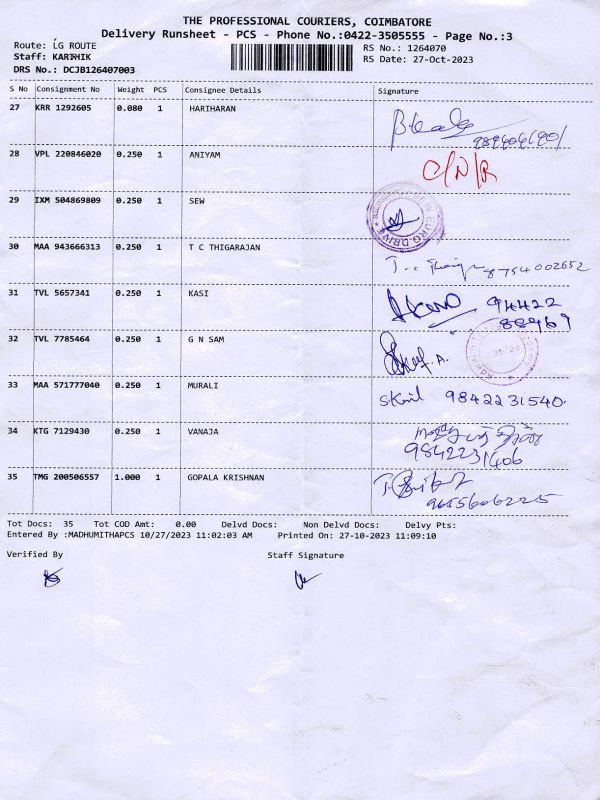 THE PROFESSIONAL COURIERS, COIMBATORE
Delivery Runsheet - PCS - Phone No.:0422-3505555 - Page No.:3
Route: LG ROUTE RS No.: 1264070
Staff: KARTHIK RS Date: 27-Oct-2023
DRS No.: DCJB126407003
S No Consignment No Weight PCS Consignee Details Signature
27 KRR 1292605 0.080 1 HARIHARAN
28 VPL 220846020 0.250 1 ANIYAM C/N/R
29 IXM 504869809 0.250 1 SEW
EURO DRIVE
30 MAA 943666313 0.250 1 T C THIGARAJAN 8754002652
31 TVL 5657341 0.250 1 KASI 94422
88969
32 TVL 7785464 0.250 1 G N SAM
33 MAA 571777040 0.250 1 MURALI 9842231540
34 KTG 7129430 0.250 1 VANAJA
9842231406
35 TMG 200506557 1.000 1 GOPALA KRISHNAN
9655606225
Tot Docs: 35 Tot COD Amt: 0.00 Delvd Docs: Non Delvd Docs: Delvy Pts:
Entered By :MADHUMITHAPCS 10/27/2023 11:02:03 AM Printed On: 27-10-2023 11:09:10
Verified By Staff Signature